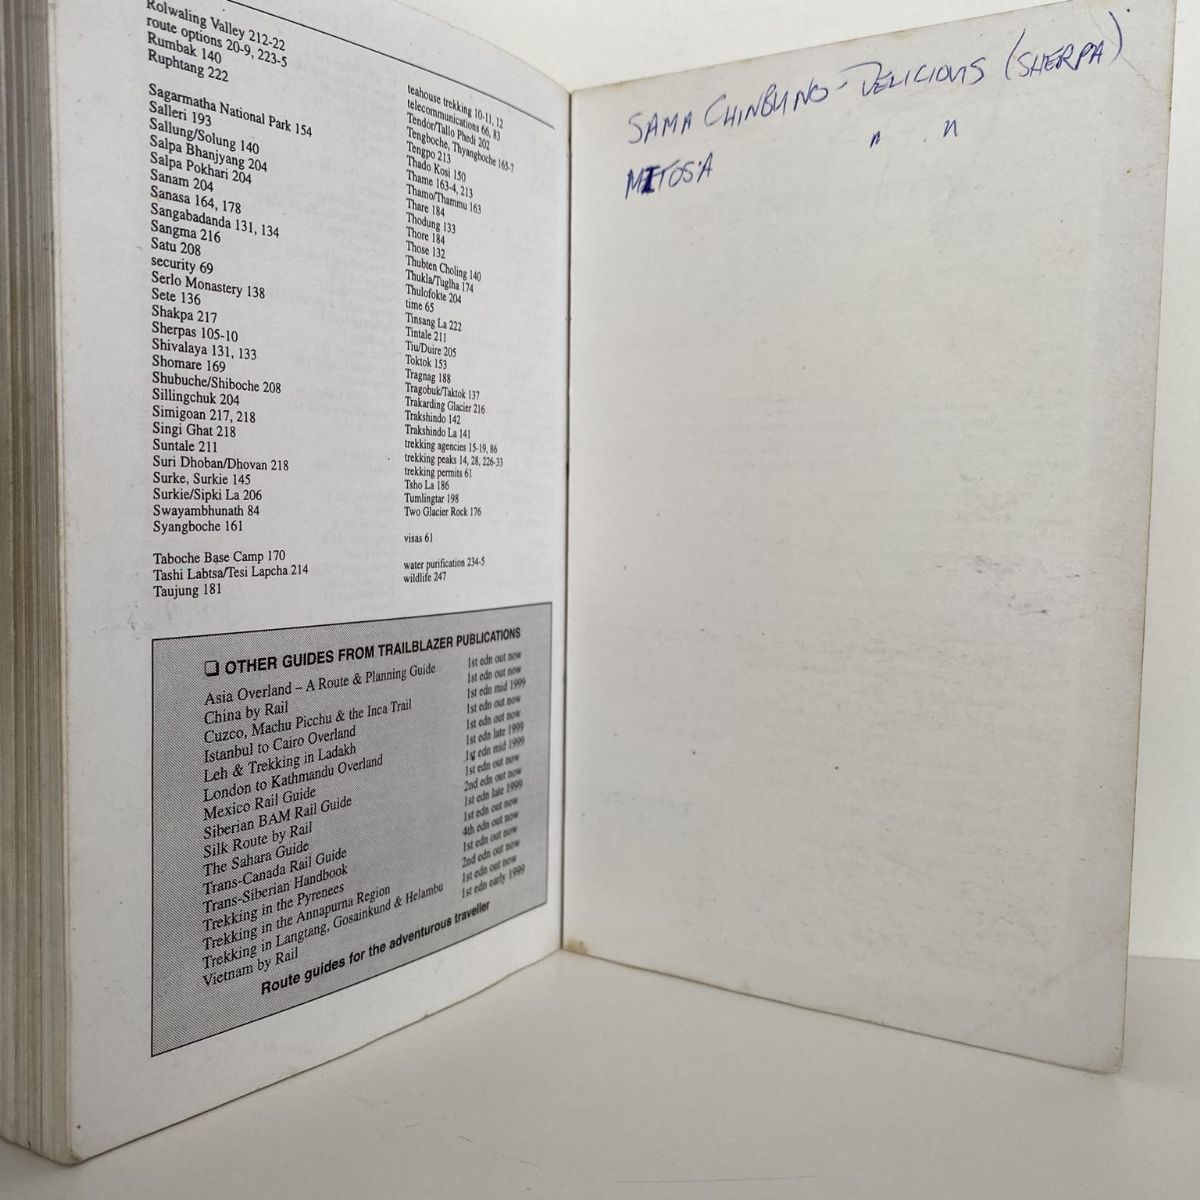 Rolwaling Valley 212-22
route options 20-9, 223-5
Rumbak 140
Ruphtang 222
Sagarmatha National Park 154
Salleri 193
Sallung/Solung 140
Salpa Bhanjyang 204
Salpa Pokhari 204
Sanam 204
Sanasa 164, 178
Sangabadanda 131, 134
Sangma 216
Satu 208
security 69
Serlo Monastery 138
Sete 136
Shakpa 217
Sherpas 105-10
Shivalaya 131, 133
Shomare 169
Shubuche/Shiboche 208
Sillingchuk 204
Simigoan 217, 218
Singi Ghat 218
Suntale 211
Suri Dhoban/Dhovan 218
Surke, Surkie 145
Surkie/Sipki La 206
Swayambhunath 84
Syangboche 161
Taboche Base Camp 170
Tashi Labtsa/Tesi Lapcha 214
Taujung 181
teahouse trekking 10-11, 12
telecommunications 66, 83
Tendor/Tallo Phedi 202
Tengboche, Thyangboche 165-7
Tengpo 213
Thado Kosi 150
Thame 163-4, 213
Thamo/Thammu 163
Thare 184
Thodung 133
Thore 184
Those 132
Thubten Choling 140
Thukla/Tuglha 174
Thulofokte 204
time 65
Tinsang La 222
Tintale 211
Tiu/Duire 205
Toktok 153
Tragnag 188
Tragobuk/Taktok 137
Trakarding Glacier 216
Trakshindo 142
Trakshindo La 141
trekking agencies 15-19, 86
trekking peaks 14, 28, 226-33
trekking permits 61
Tsho La 186
Tumlingtar 198
Two Glacier Rock 176
visas 61
water purification 234-5
wildlife 247
❏ OTHER GUIDES FROM TRAILBLAZER PUBLICATIONS
Asia Overland – A Route & Planning Guide 1st edn out now
China by Rail 1st edn out now
Cuzco, Machu Picchu & the Inca Trail 1st edn mid 1999
Istanbul to Cairo Overland 1st edn out now
Leh & Trekking in Ladakh 1st edn out now
London to Kathmandu Overland 1st edn late 1999
Mexico Rail Guide 1st edn mid 1999
Siberian BAM Rail Guide 1st edn out now
Silk Route by Rail 2nd edn out now
The Sahara Guide 1st edn late 1999
Trans-Canada Rail Guide 1st edn out now
Trans-Siberian Handbook 4th edn out now
Trekking in the Pyrenees 1st edn out now
Trekking in the Annapurna Region 2nd edn out now
Trekking in Langtang, Gosainkund & Helambu 1st edn out now
Vietnam by Rail 1st edn early 1999
Route guides for the adventurous traveller
SAMA - DELICIOUS (SHERPA)
" "